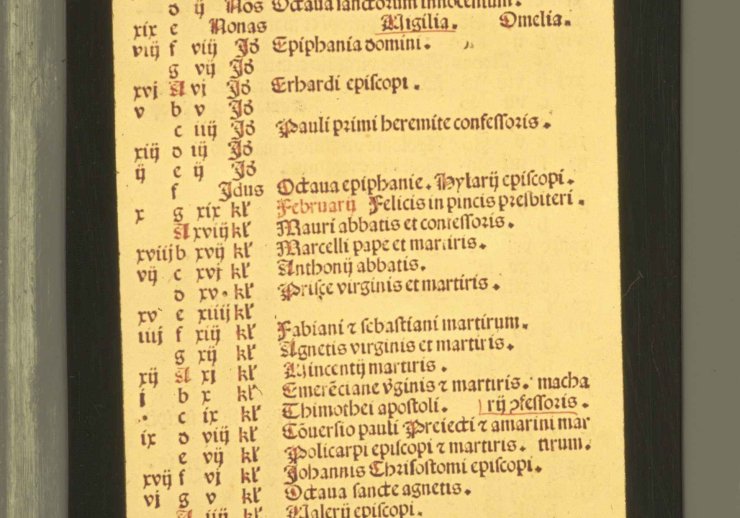 d ij Nos Octaua sanctorum innocentum.
xix e Nonas Uigilia. Omelia.
viij f viij Jd Epiphania domini.
g vij Jd
xvj A vj Jd Erhardi episcopi.
v b v Jd
c iiij Jd Pauli primi heremite confessoris.
xiij d iij Jd
ij e ij Jd
f Jdus Octaua epiphanie. Hylarij episcopi.
x g xix kl Februarij Felicis in pincis presbiteri.
A xviij kl Mauri abbatis et confessoris.
xviij b xvij kl Marcelli pape et martiris.
vij c xvj kl Anthonij abbatis.
d xv. kl Prisce virginis et martiris.
xv e xiiij kl
iiij f xiij kl Fabiani ⁊ sebastiani martirum.
g xij kl Agnetis virginis et martiris.
xij A xj kl Uincentij martiris.
j b x kl Emerēciane v̄ginis ⁊ martiris. macha
c ix kl Thimothei apostoli. rij ꝯfessoris.
ix d viij kl Cōuersio pauli Preiecti ⁊ amarini mar
e vij kl Policarpi episcopi ⁊ martiris. tirum.
xvij f vj kl Johannis Chrisostomi episcopi.
vj g v kl Octaua sancte agnetis.
A iiij kl Ualerij episcopi.